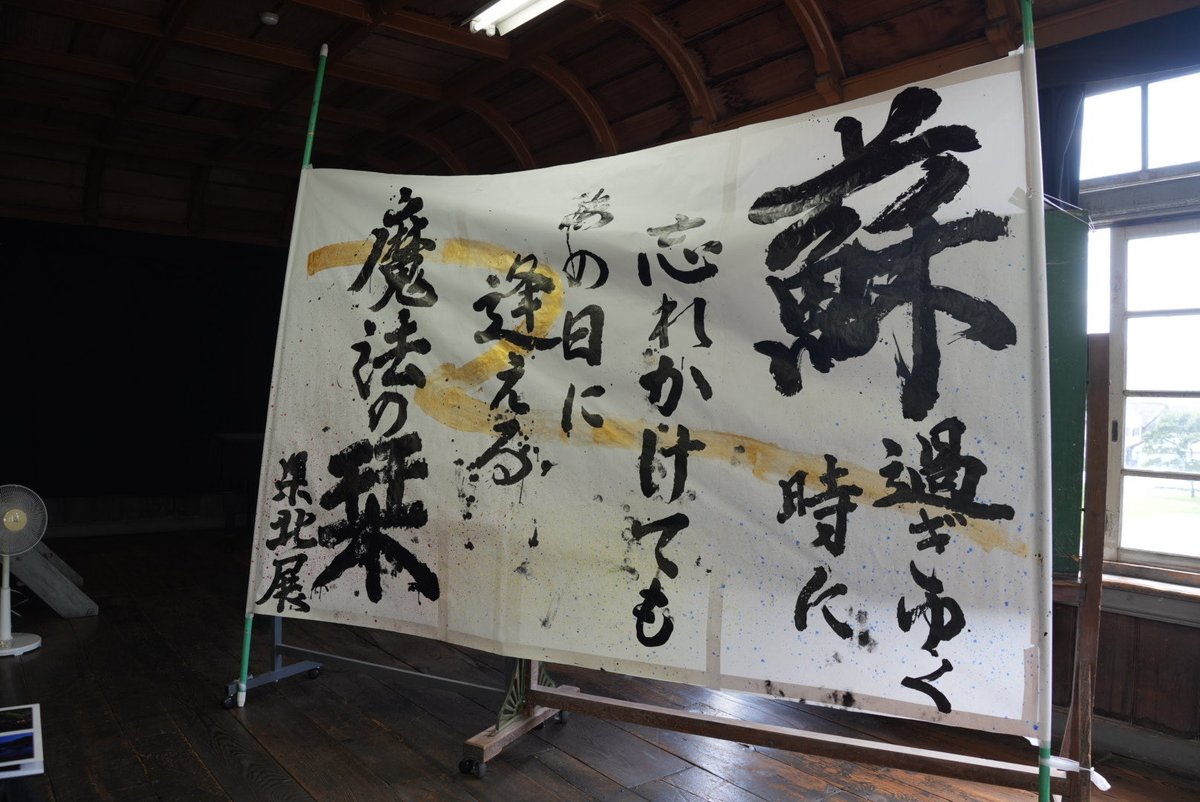 蘇
過ぎゆく
時に
忘れかけても
あの日に
逢える
魔法の栞
県北展